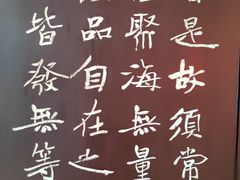 是故須常
聚海無量
品自在之
皆發無等